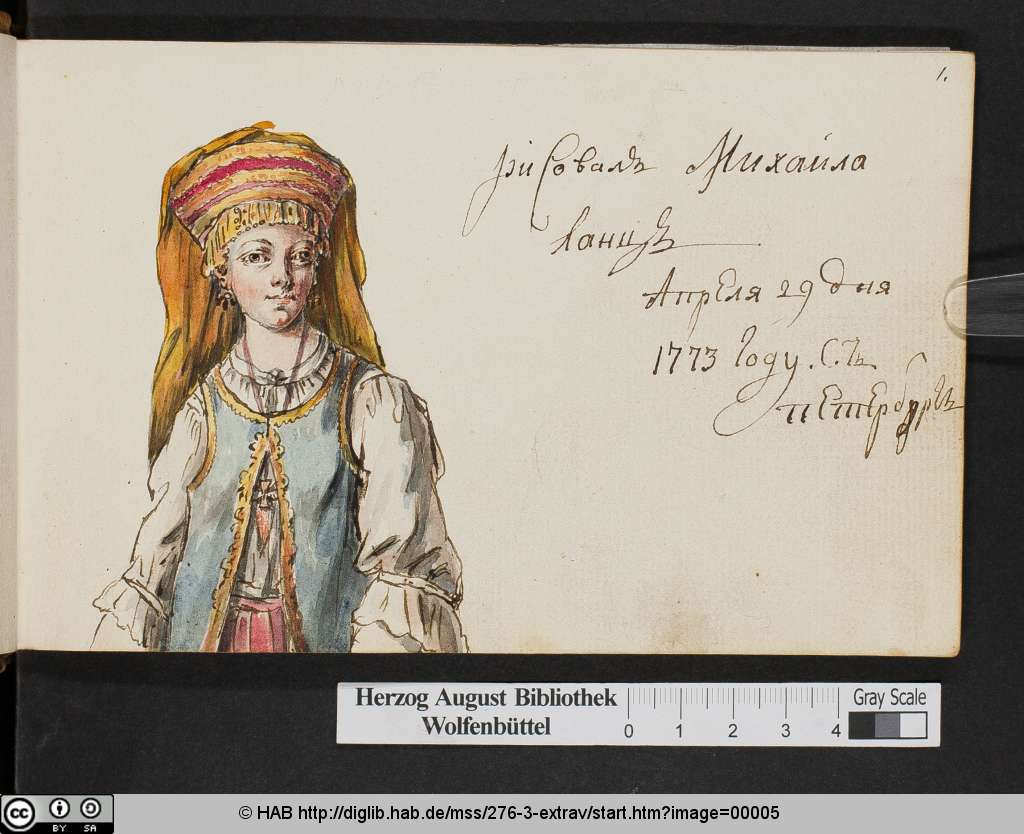 1.
рисовалъ Михайла
ланцъ
Апреля 29 дня
1773 году. С.тъ
петербургъ
Herzog August Bibliothek
Wolfenbüttel
0 1 2 3 4
Gray Scale
cc BY SA
© HAB http://diglib.hab.de/mss/276-3-extrav/start.htm?image=00005